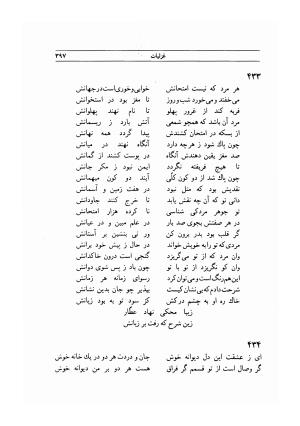 غزلیات ۳۹۷
۴۳۳
هر مرد که نیست امتحانش خوابی و خوری است در جهانش
می‌خفتد و می‌خورد شب و روز تا مغز بود در استخوانش
فربه کند از غرور پهلو تا نام نهند پهلوانش
مرد آن باشد که همچو شمعی آتش بارد ز ریسمانش
از بسکه در امتحان کشندش پیدا گردد همه نهانش
چون پاک شود ز هرچه دارد آنگاه نهند در میانش
صد مغز یقین دهندش آنگاه در پوست کشند از گمانش
تا هیچ فریفته نگردد ایمن نبود ز مکر جانش
چون پاک شد از دو کون کلّی آیند دو کون میهمانش
نقدیش بود که مثل نبود در هفت زمین و آسمانش
دانی تو که آن چه نقش یابد تا خرج کنند جاودانش
تو جوهر مردکی شناسی نا کرده هزار امتحانش
در هر صفتش بجوی صد بار در علم مبین و در عیانش
گر قلب بود بدر برون کن ور نی بنشین بر آستانش
مردی که تو را بخویش خواند در حال ز پیش خود برانش
وان مرد که از تو می‌گریزد گنجی است درون خاکدانش
وان کو نگریزد از تو با تو چون باد ز پس شوی دوانش
هر زمان زمانه رسوای
شرحت دادم که بی نشان کیست بپذیر چو جان بدین نشانش
خاك ره او به چشم درکش گر سود تو به بود زیانش
زیبا محکی نهاد عطّار
زین شرح که رفت بر زبانش
۴۳۴
ای ز عشقت این دل دیوانه خوش جان و دردت هر دو در یك خانه خوش
گر وصال است از تو قسمم گر فراق هست هر دو بر من دیوانه خوش